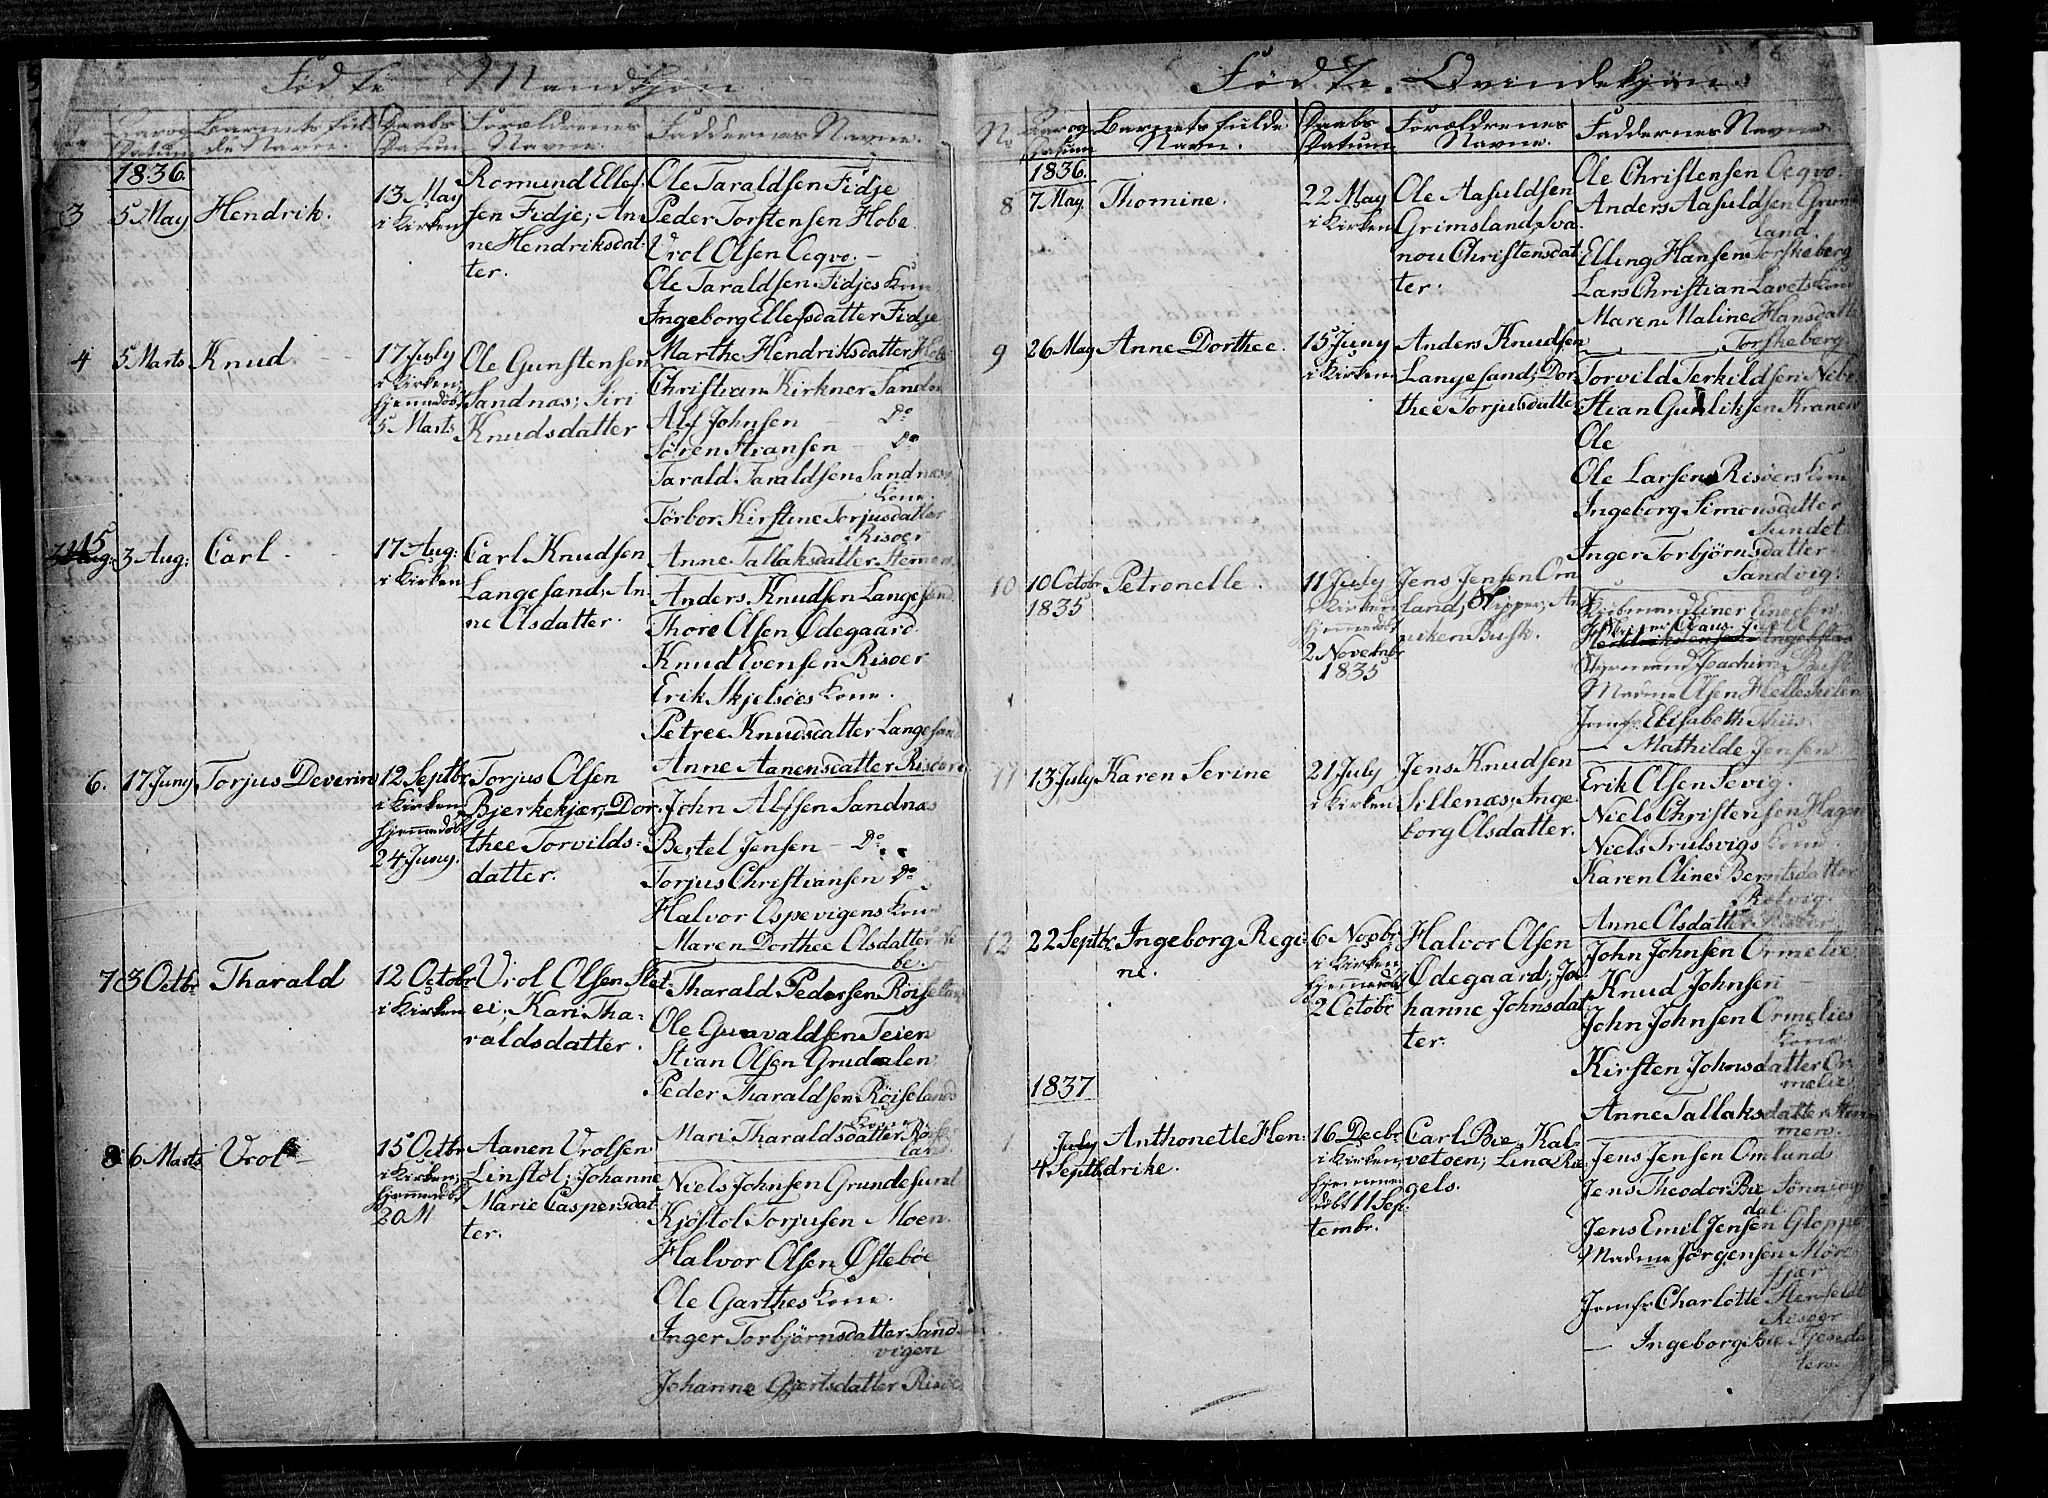 Födte Mandkjön.
Aar og Datum
Barnets fulde Navn.
Daabs Datum
Forældrenes Navne.
Faddernes Navne.
1836.
3
5 May
Hendrik.
13 May
i Kirken
Romund Ellef-
sen Fidje; An-
ne Hendriksdat-
ter.
Ole Taraldsen Fidje
Peder Torstensen Hobe
Vrol Olsen Ceqvo. –
Ole Taraldsen Fidjes Kone
Ingeborg Ellefsdatter Fidje
Marthe Hendriksdatter Hobe
4
5 Marts
Knud
17 July
i Kirken;
hjemmedøbt
5 Marts
Ole Gunstensen
Sandnæs; Siri
Knudsdatter
Christian Kirkner Sandnæs
Alf Johnsen – Do
Sören Stransen – Do
Tarald Taraldsen Sandnæs
Kone.
Törbor Kirstine Torjusdatter
Risøer
Anne Tallaksdatter Hemmen
5
3 Aug:
Carl
17 Aug:
i Kirken
Carl Knudsen
Langesand; An-
ne Olsdatter.
Anders Knudsen Langesand
Thore Olsen Ødegaard
Knud Evensen Risøer
Erik Skjelsöes Kone.
Petree Knudsdatter Langesand
Anne Aanensdatter Risøer
6.
17 Juny
Torjus Deverin
12 Septbr
i Kirken,
hjemmedøbt
24 Juny.
Torjus Olsen
Bjerkekjær; Dor-
thee Torvilds-
datter.
John Alfsen Sandnæs
Bertel Jensen – Do.
Torjus Christiansen Do
Halvor Ospevigens Kone
Maren Dorthee Olsdatter Ne
be.
7
3 Octbr
Tharald
12 Octobr
i Kirken
Vrol Olsen Slet-
ei; Kari Tha-
raldsdatter.
Tharald Pedersen Röiseland
Ole Gunvaldsen Teien
Stian Olsen Grudalen
Peder Tharaldsen Röiselands
Kone
Mari Tharaldsdatter Röise-
land
8
6 Marts
Vrol
15 Octbr
i Kirken;
hjemmedøbt
20 M
Aanen Vrolsen
Linstöl; Johanne
Marie Caspersdat-
ter.
Niels Johnsen Grundesund
Kjöstol Torjusen Moen.
Halvor Olsen Östeböe
Ole Garthes Kone.
Inger Torbjörnsdatter Sand-
vigen
Johanne Gjertsdatter Risøer
Födte Qvindekjön.
No
Aar og Datum
Barnets fulde Navn.
Daabs Datum
Forældrenes Navne.
Faddernes Navne.
1836.
8
7 May
Thomine.
22 May
i Kirken
Ole Aasuldsen
Grimsland, Sva-
nou Christensdat-
ter.
Ole Christensen Ceqvo.
Anders Aasuldsen Grims
land.
Elling Hansen Torskeberg
Lars Christian Lavets Kone
Maren Maline Hansdatter
Torskeberg
9
26 May
Anne Dorthee.
15 Juny
i Kirken
Anders Knudsen
Langesand; Dor-
thee Torjusdatter
Torvild Terkildsen Nebe
Stian Gunliksen Kranen
Ole
Ole Larsen Risøers Kone
Ingeborg Simonsdatter
Sundet
Inger Torbjörnsdatter
Sandvig.
10
10 Octobr
1835
Petronelle.
11 July
i Kirken
hjemmedøbt
2 Novembr
1835
Jens Jensen Om-
land, Skipper; An-
niken Busk.
Kjöbmand Einer Einersen
Skipper Claus Juell
Styrmand Joachim Busk
Madme Olsen Hellesheien
Jomfr. Elisabeth Thiis
– Mathilde Jensen
11
13 July
Karen Serine
21 July
i Kirken
Jens Knudsen
Sillenæs; Inge-
borg Olsdatter.
Erik Olsen Sevig.
Niels Christensen Hagen
Niels Trulsvigs Kone.
Karen Oline Berntsdatter
Rotvig.
Anne Olsdatter
12
22 Septbr
Ingeborg Regi-
ne.
6 Novbr
i Kirken,
hjemmedøbt
2 Octobr
Halvor Olsen
Ødegaard; Jo-
hanne Johnsdat-
ter.
John Johnsen Ormelie
Knud Johnsen –
John Johnsen Ormelies
Kone
Kirsten Johnsdatter Or-
melie
Anne Tallaksdatter Hem-
men.
1837
1
July
4 Septbr
Anthonette Hen-
drike.
16 Decbr
i Kirken,
hjemme-
døbt 11 Sep-
tembr.
Carl Bie, Kal-
vetoen; Lina Rie-
gels.
Jens Jensen Omland
Jens Theodor Bie Sönning-
dal
Jens Emil Jensen Gloppe
Madme Jörgensen Mör-
fjær
Jomfr Charlotte Henfeldt
Risøer
– Ingeborg Bie Gjenda
len.